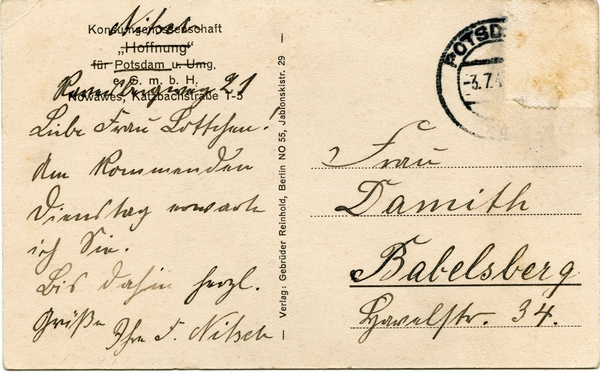 Nitsch
Konsumgenossenschaft
„Hoffnung"
für Potsdam u. Umg.
e. G. m. b. H.
21
Nowawes, Katzbachstraße 1-5
Liebe Frau Lottchen!
Am kommenden
Dienstag erwarte
ich Sie.
Bis dahin herzl.
Grüße
Ihre F. Nitsch
Verlag: Gebrüder Reinhold, Berlin NO 55, Jablonskistr. 29
POTSD
-3.7.4
Frau
Damith
Babelsberg
Havelstr. 34.